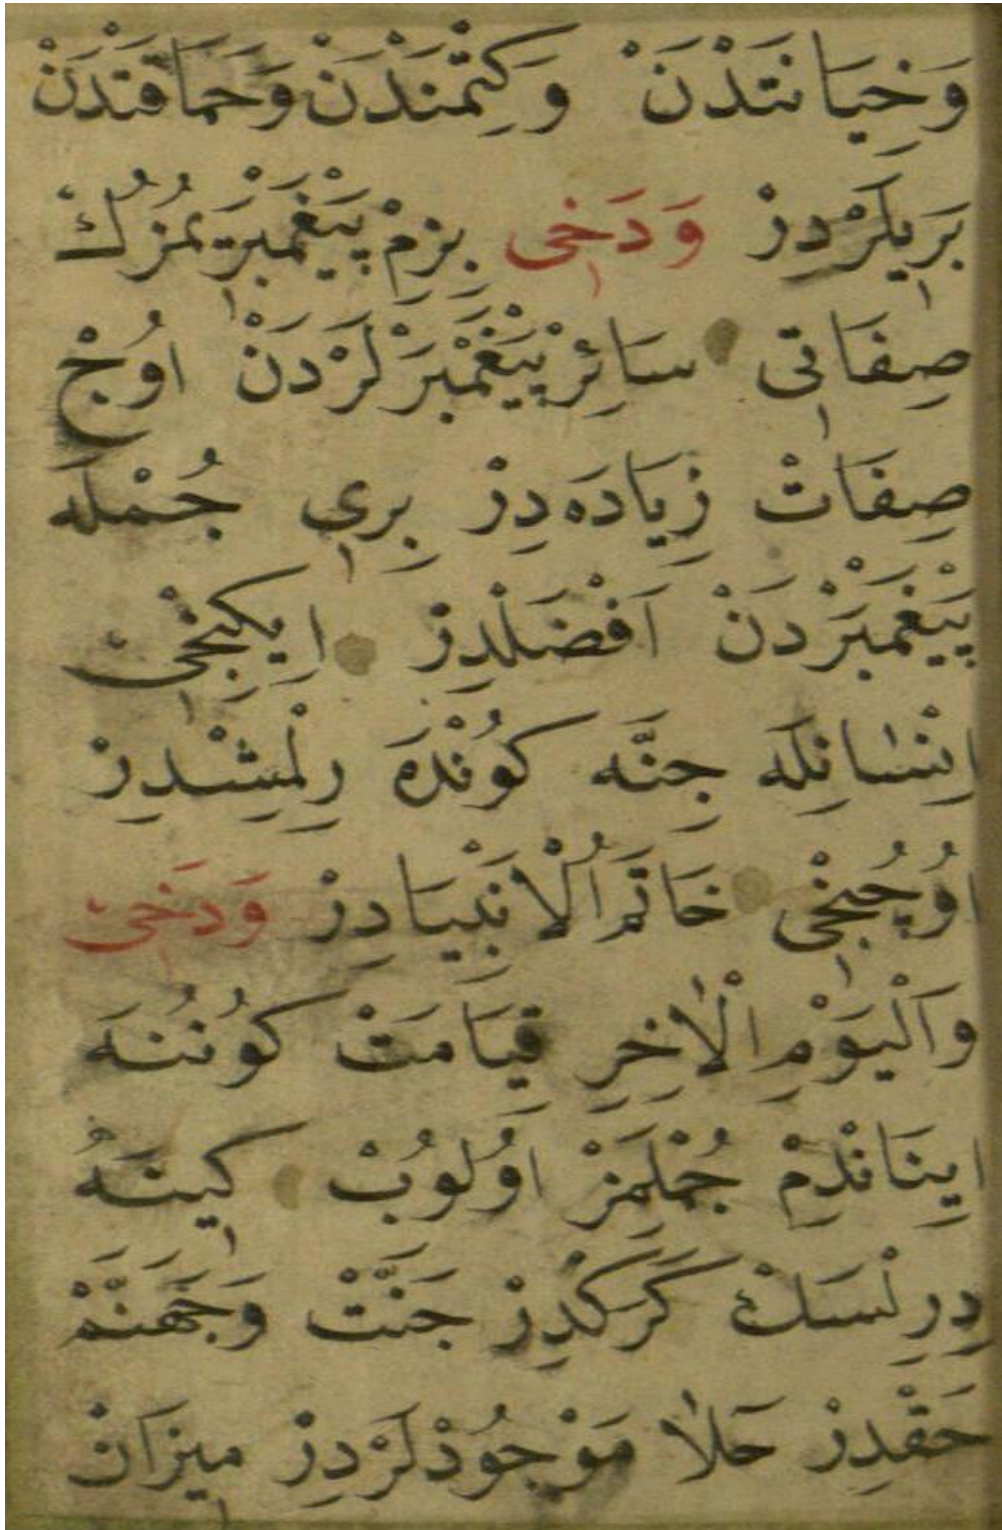 وَخِيَانَتْدَنْ وَكِتْمَنْدَنْ وَحَمَاقَتْدَنْ
بَرِيلَرْدِرْ وَدَخِى بِزِمْ پَيْغَمْبَرِيمُزُكْ
صِفَاتِى سَائِرْ پَيْغَمْبَرْلَرْدَنْ اُوجْ
صِفَاتْ زِيَادَه دِرْ بِرِى جُمْلَه
پَيْغَمْبَرْدَنْ اَفْضَلْدِرْ اِيكِنْجِى
اِنْسَانِلَه جِنَّه كُونْدَه رِلْمِشْدِرْ
اُوچُنْجِى خَاتَمُ اْلاَنْبِيَادِرْ وَدَخِى
وَالْيَوْمِ اْلاٰخِرِ قِيَامَتْ كُونُنَه
اِينَانْدِمْ جُمْلَمِزْ اُولُوبْ كِينَه
دِرِلْسَكْ كَرَكْدِرْ جَنَّتْ وَجَهَنَّمْ
حَقْدِرْ حَلاٰ مَوْجُودْلَرْدِرْ مِيزَانْ